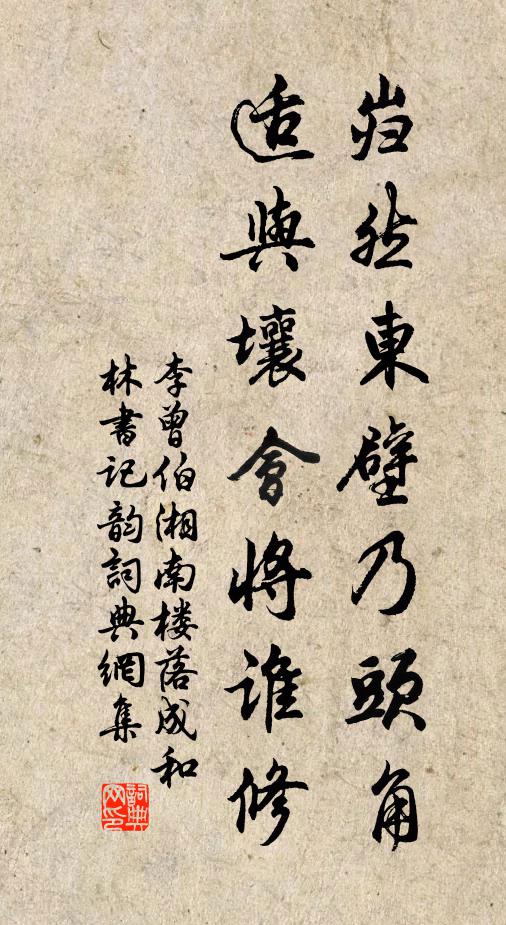 岿然東壁乃頭角
适與壞會將谁修
李曾伯湘南楼落成和
林書记韵詞典網集
詞典
网印